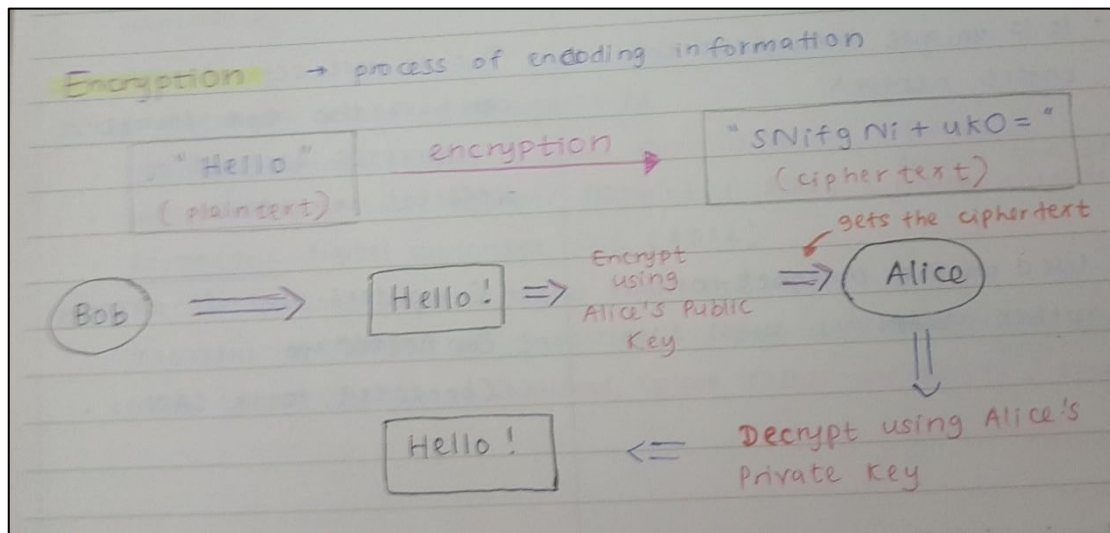 Encryption → process of encoding information
"Hello" encryption "sNifgNi+ukO="
(plaintext) (ciphertext)
gets the ciphertext
Bob ⇒ Hello! ⇒ Encrypt using Alice's Public Key ⇒ Alice
⇓
Hello! ⇐ Decrypt using Alice's
Private Key